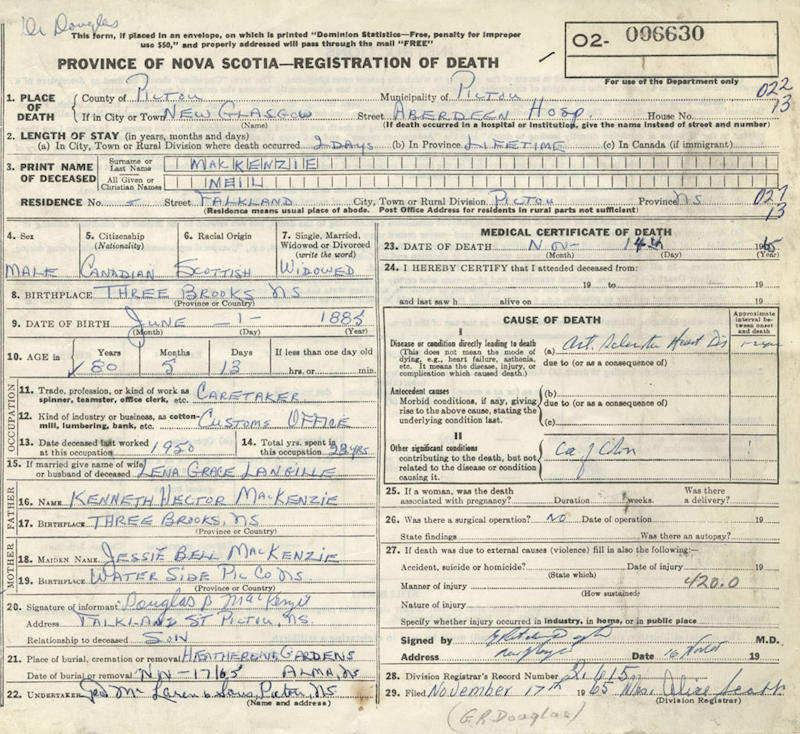 Dr Douglas
This form, if placed in an envelope, on which is printed "Dominion Statistics—Free, penalty for improper
use $50," and properly addressed will pass through the mail "FREE"
PROVINCE OF NOVA SCOTIA—REGISTRATION OF DEATH
O2- 096630
For use of the Department only
1. PLACE OF DEATH
County of Pictou Municipality of Pictou 022
If in City or Town New Glasgow Street Aberdeen Hosp. House No. 13
(Name) (If death occurred in a hospital or institution, give the name instead of street and number)
2. LENGTH OF STAY (in years, months and days)
(a) In City, Town or Rural Division where death occurred 2 Days (b) In Province LIFETIME (c) In Canada (if immigrant)
3. PRINT NAME OF DECEASED
Surname or Last Name MacKENZIE
All Given or Christian Names NEIL
RESIDENCE No. - Street FALKLAND City, Town or Rural Division PICTOU Province NS 027
(Residence means usual place of abode. Post Office Address for residents in rural parts not sufficient) 13
4. Sex 5. Citizenship (Nationality) 6. Racial Origin 7. Single, Married, Widowed or Divorced (write the word)
MALE CANADIAN SCOTTISH WIDOWED
8. BIRTHPLACE THREE BROOKS NS
(Province or Country)
9. DATE OF BIRTH June -1- 1885
(Month) (Day) (Year)
10. AGE in Years Months Days If less than one day old
80 5 13 hrs. or min.
OCCUPATION
11. Trade, profession, or kind of work as spinner, teamster, office clerk, etc. CARETAKER
12. Kind of industry or business, as cotton-mill, lumbering, bank, etc. CUSTOMS OFFICE
13. Date deceased last worked at this occupation 1950 14. Total yrs. spent in this occupation yrs
15. If married give name of wife or husband of deceased LENA GRACE LANGILLE
FATHER
16. NAME KENNETH HECTOR MacKENZIE
17. BIRTHPLACE THREE BROOKS, NS
(Province or Country)
MOTHER
18. MAIDEN NAME JESSIE BELL MacKENZIE
19. BIRTHPLACE WATER SIDE PIC CO NS
(Province or Country)
20. Signature of informant Douglas B MacKenzie
Address FALKLAND ST PICTOU, NS.
Relationship to deceased SON
21. Place of burial, cremation or removal GARDENS
Date of burial or removal 17/65 ALMA, NS
22. UNDERTAKER McLaren & Sons, Pictou, NS
(Name and address)
MEDICAL CERTIFICATE OF DEATH
23. DATE OF DEATH Nov- 14th 1965
(Month) (Day) (Year)
24. I HEREBY CERTIFY that I attended deceased from:
19 to 19
and last saw h alive on 19
CAUSE OF DEATH
Approximate interval between onset and death
I
Disease or condition directly leading to death
(This does not mean the mode of dying, e.g., heart failure, asthenia, etc. It means the disease, injury, or complication which caused death.)
(a) Heart Dis
due to (or as a consequence of)
Antecedent causes
Morbid conditions, if any, giving rise to the above cause, stating the underlying condition last.
(b)
due to (or as a consequence of)
(c)
II
Other significant conditions
contributing to the death, but not related to the disease or condition causing it.
Ca of Colon
25. If a woman, was the death associated with pregnancy? Duration weeks. Was there a delivery?
26. Was there a surgical operation? NO Date of operation 19
State findings Was there an autopsy?
27. If death was due to external causes (violence) fill in also the following:—
Accident, suicide or homicide? Date of injury 19
(State which)
Manner of injury 420.0
(How sustained)
Nature of injury
Specify whether injury occurred in industry, in home, or in public place
Signed by M.D.
Address Date 16 19
28. Division Registrar's Record Number
29. Filed November 17th 1965 Mrs. Alice
(Division Registrar)
(G.R. Douglas)